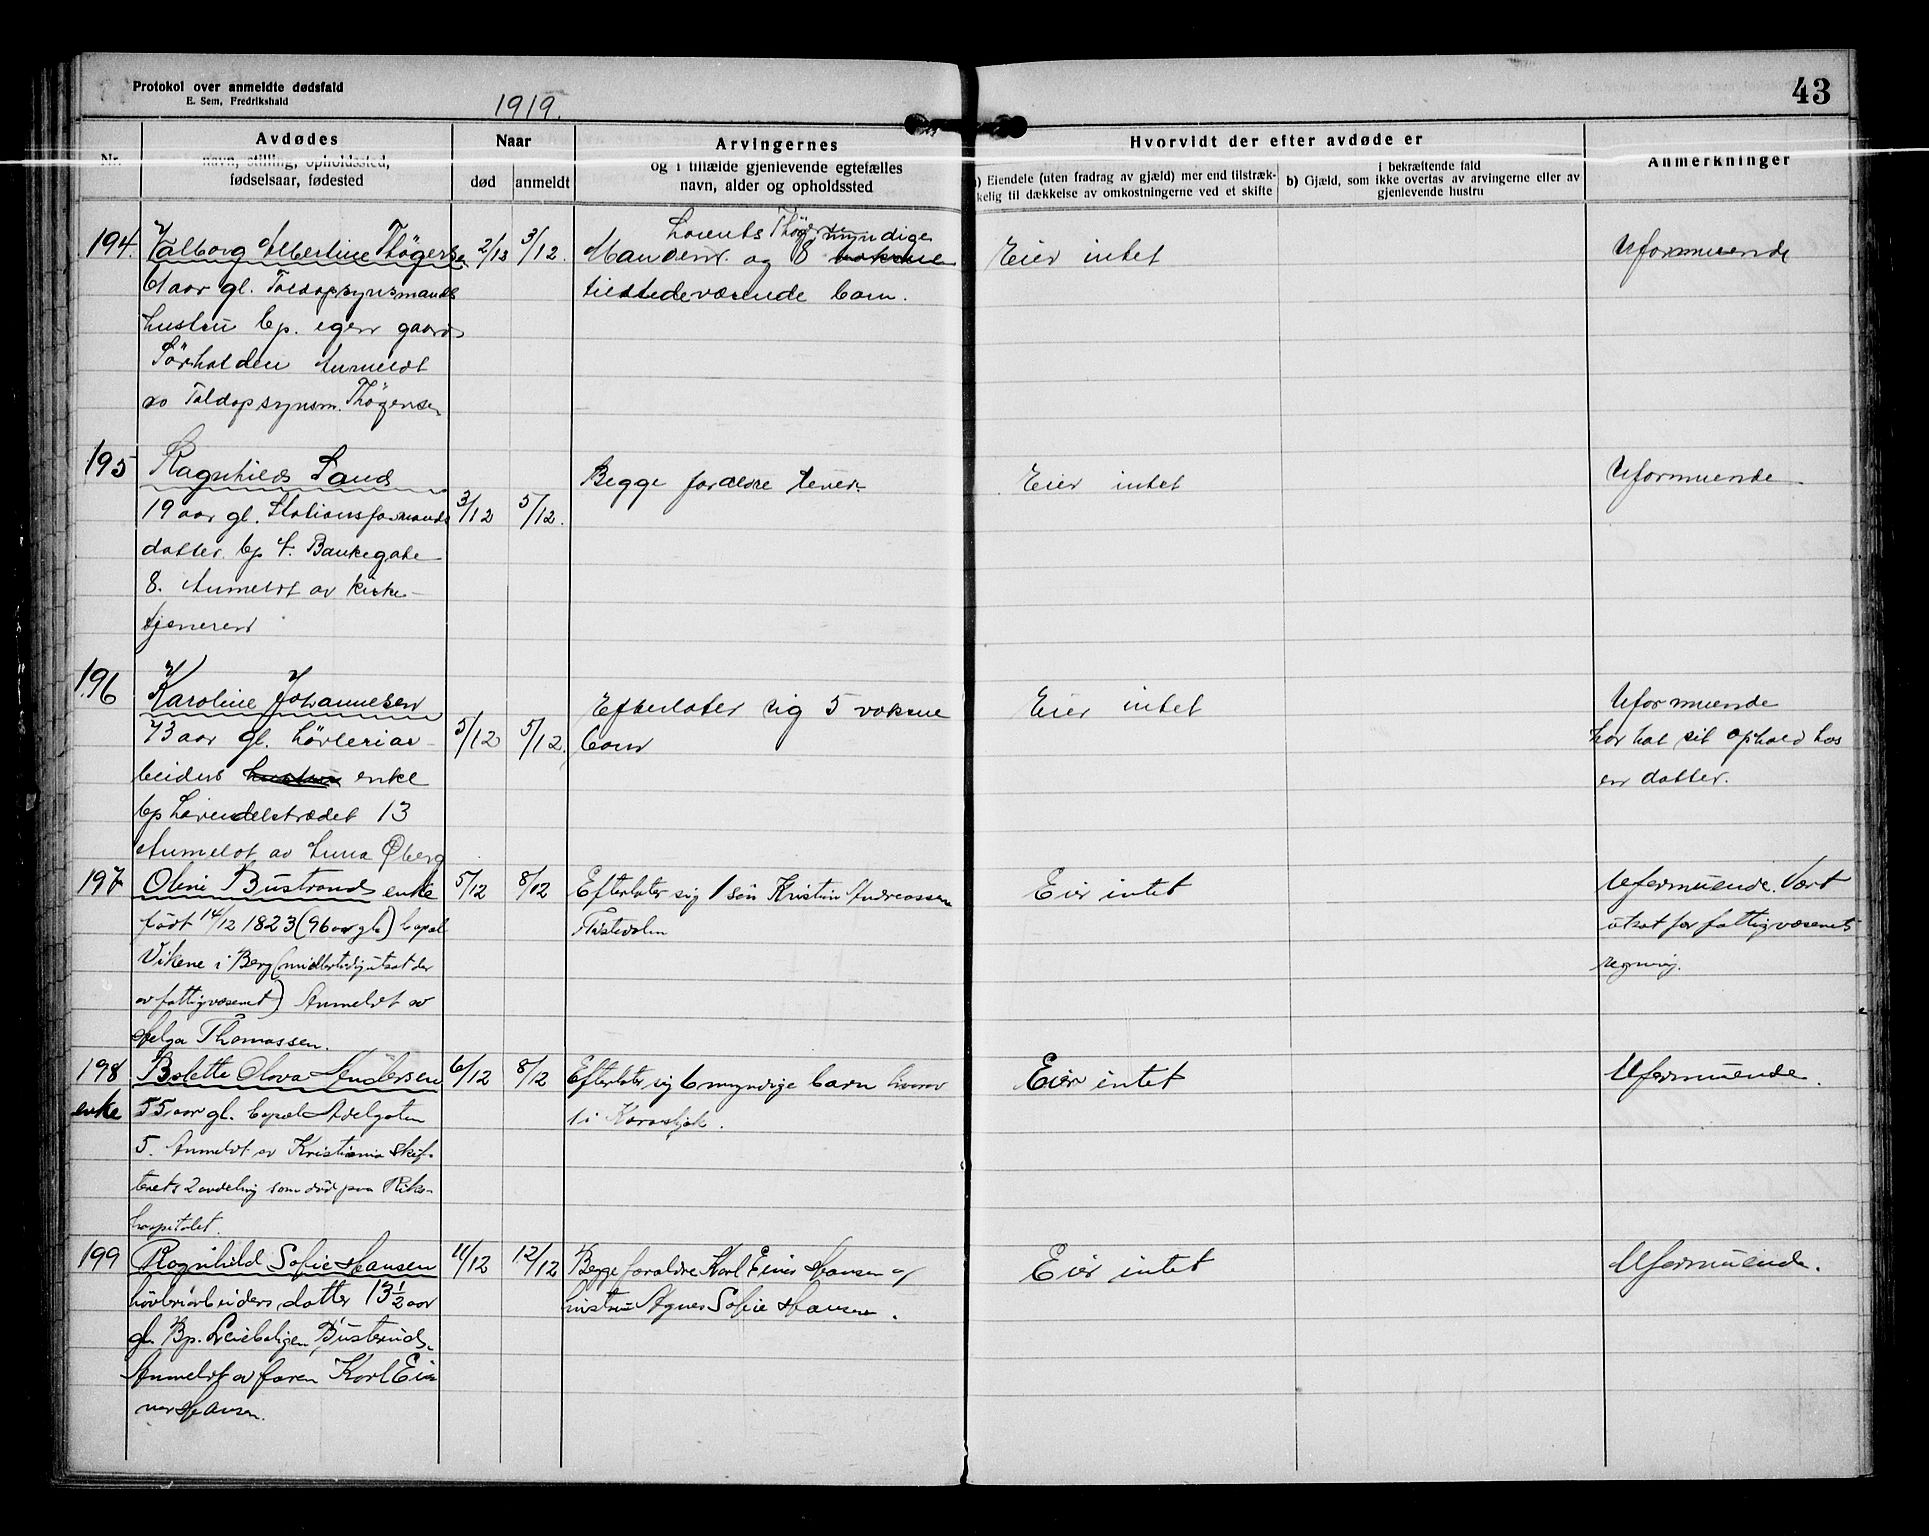 Protokol over anmeldte dødsfald
E. Sem, Fredrikshald
1919.
43
Nr.
Avdødes
navn, stilling, opholdssted,
fødselsaar, fødested
Naar
død
anmeldt
Arvingernes
og i tilfælde gjenlevende egtefælles
navn, alder og opholdssted
Hvorvidt der efter avdøde er
a) Eiendele (uten fradrag av gjæld) mer end tilstræk-
kelig til dækkelse av omkostningerne ved et skifte
i bekræftende fald
b) Gjæld, som ikke overtas av arvingerne eller av
gjenlevende hustru
Anmerkninger
194. Valborg Albertine Thøgersen
61 aar gl. Toldopsynsmands
hustru bp. egen gaard
Sørhalden Anmeldt
av Toldopsynsm. Thøgersen
2/12 3/12.
Lorents Thøgersen myndige
Manden og 8 voksne
tilstedeværende barn.
Eier intet
Uformuende
195 Ragnhild Sand
19 aar gl. Stationsformands
datter bp. Bankegate
8. Anmeldt av kirke-
tjeneren
3/12 5/12.
Begge forældre lever.
Eier intet
Uformuende
196 Karoline Johannesen
73 aar gl. høvleriar-
beiders hustru enke
bp Lavendelstrædet 13
Anmeldt av Anna Øberg
5/12 5/12.
Efterlater sig 5 voksne
barn
Eier intet
Uformuende
har hat sit ophold hos
en datter.
197 Oline Bustrand enke
født 14/12 1823 (96 aar gl) bopæl
Vikene i Berg (midlertidig utsat der
av fattigvæsenet) Anmeldt av
Helga Thomassen.
5/12 8/12
Efterlater sig 1 søn Kristin Andreassen
Tistedalen
Eier intet
Uformuende. Vært
utsat for fattigvæsenets
regning.
198 Bolette Olava Andersen
enke 55 aar gl. bopæl Adelgaten
5. Anmeldt av Kristiania skif-
terets 2 avdeling som død paa Riks-
hospitalet.
6/12 8/12
Efterlater sig 6 myndige barn hvorav
1 i Karasjok.
Eier intet
Uformuende.
199 Ragnhild Sofie Hansen
høvleriarbeiders datter 13½ aar
gl. Bp. Leieboligen Busterud.
Anmeldt av faren Karl Ei-
nar Hansen.
11/12 12/12
Begge forældre Karl Einar Hansen og
hustru Agnes Sofie Hansen.
Eier intet
Uformuende.